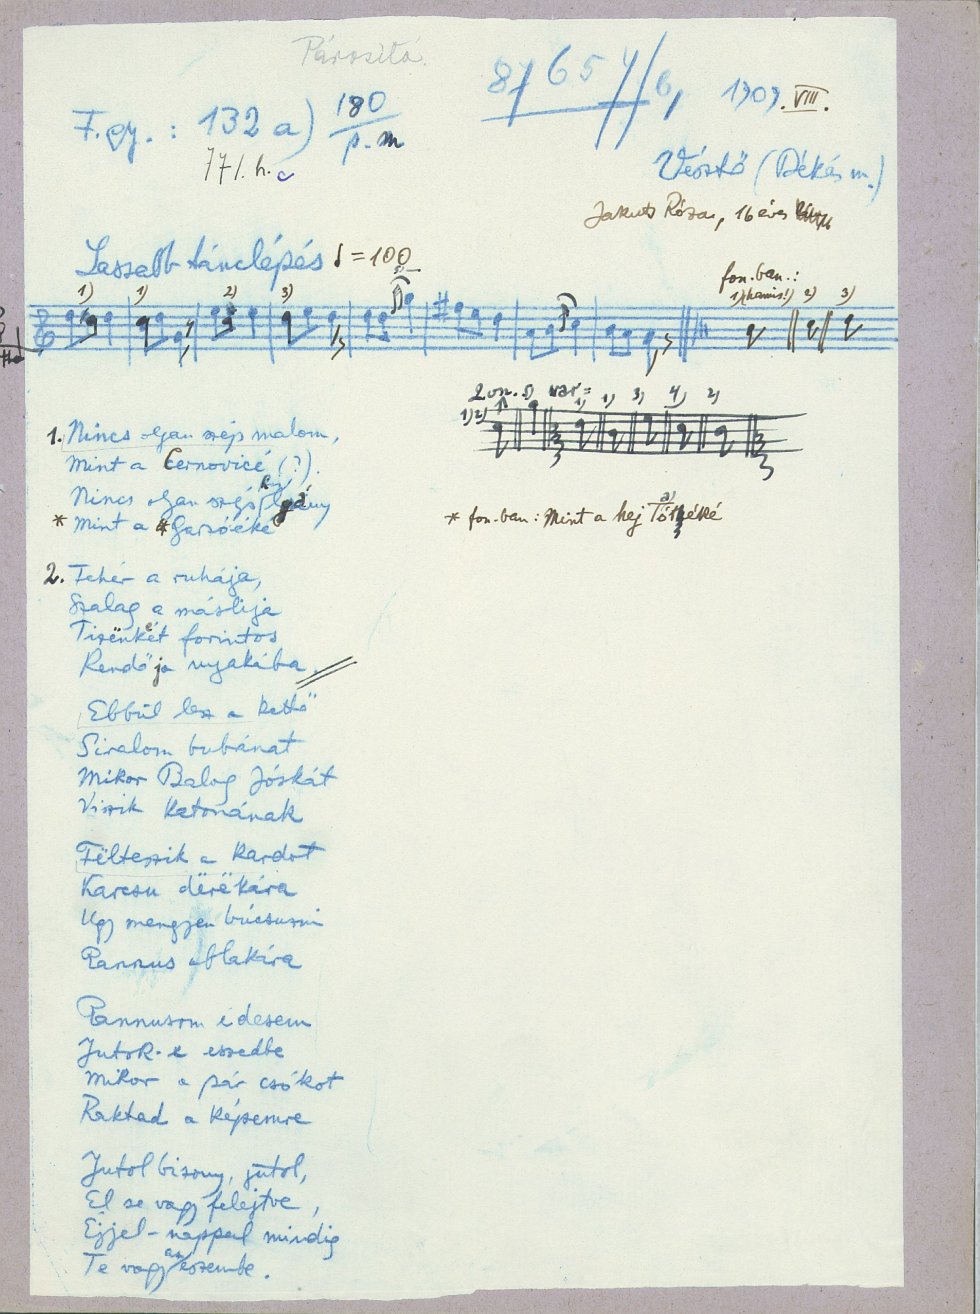 Párosító.
87 654/6,
1909. VIII.
F. gy. : 132 a) 180 p. m
771. h. c
Vésztő (Békés m.)
Jakub Róza, 16 éves
Lassabb tánclépés ♩ = 100
fon. ban. :
1) 1) 2) 3) 5) 1) (hamis!) 2) 3)
2 on. 5) var =
1) 2) 1) 1) 3) 4) 2)
1. Nincs olyan szép malom,
Mint a Cernovicé (?).
Nincs olyan szép lány
* Mint a * Garzóéké
* fon. ban : Mint a hej Tóthéké
2. Fehér a ruhája,
Szalag a máslija
Tizenkét forintos
Kendő ja nyakába.
Ebbűl lesz a kettő
Siralom bubánat
Mikor Balog Jóskát
Viszik katonának
Fëlteszik a kardot
Karcsu dërëkára
Ugy mengyen búcsuzni
Pannus ablakára
Pannusom édesem
Jutok-e eszedbe
Mikor a pár csókot
Raktad a képemre
Jutol bizony, jutol,
El se vagy felejtve,
Éjjel-nappal mindig
Te vagy az eszembe.